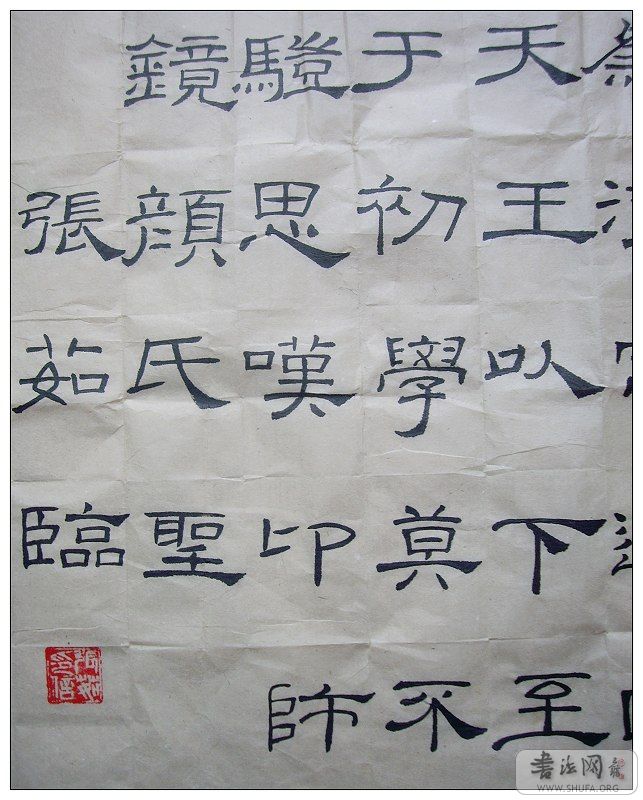 天王以下至
于初學莫不
思嘆卬師
鏡顏氏聖
張茹臨
書法网
WWW.SHUFA.ORG